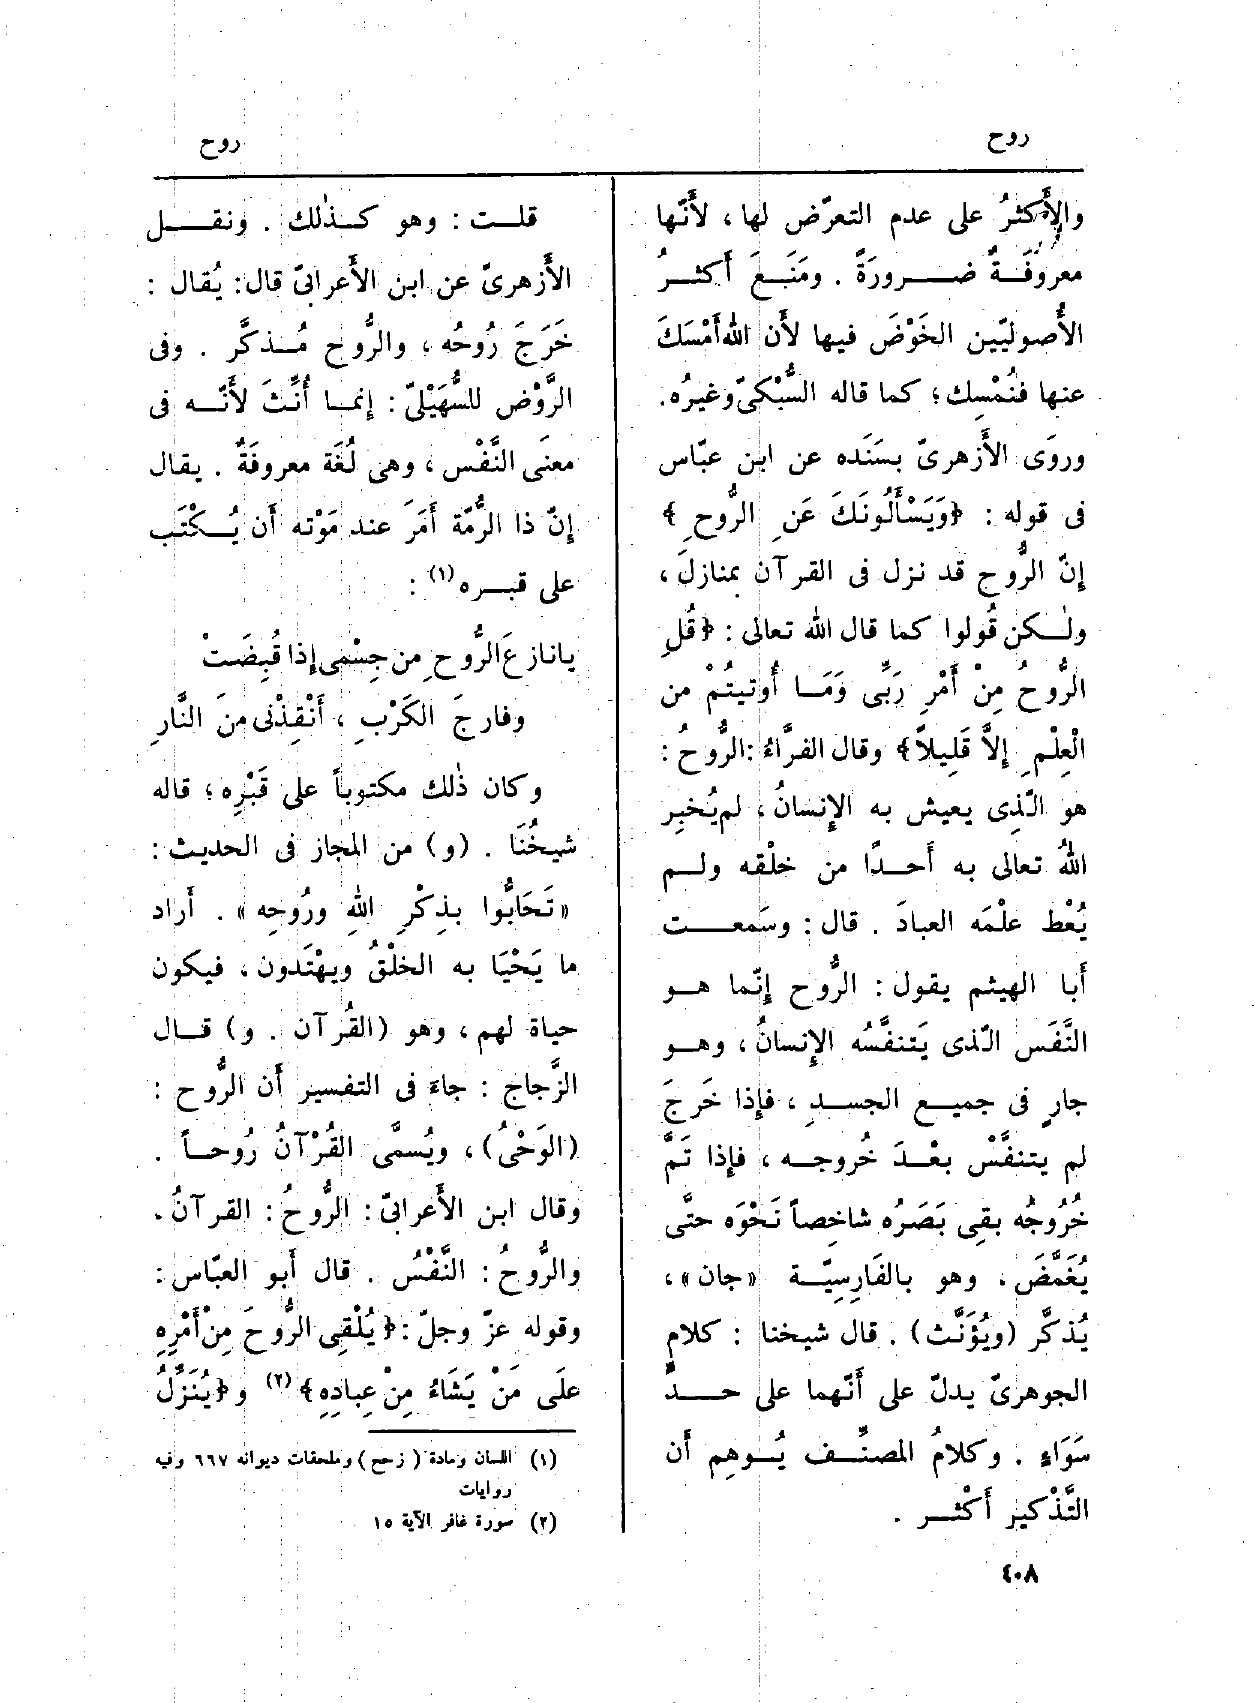 روح
روح
والأَكثرُ على عدم التعرّض لها، لأَنّها
معروفَةٌ ضــرورَةً . ومَنَعَ أَكثرُ
الأُصوليّين الخَوْضَ فيها لأَن اللهَ أَمْسَكَ
عنها فنُمْسِك؛ كما قاله السُّبْكىّ وغيرُه.
وروَى الأَزهرىّ بسَنَده عن ابن عبّاس
فى قوله : ﴿وَيَسْأَلُونَكَ عَنِ الرُّوحِ﴾
إنّ الرُّوح قد نزل فى القرآن بمنازلَ،
ولٰـكن قُولوا كما قال الله تعالى : ﴿قُلِ
الرُّوحُ مِنْ أَمْرِ رَبِّى وَمَـا أُوتيتُمْ من
الْعِلْمِ إِلاَّ قَلِيلاً﴾ وقال الفرَّاءُ :الرُّوحُ :
هو الّذِى يعيش به الإِنسانُ، لم يُخبِر
اللهُ تعالى به أَحـدًا من خلْقه ولـم
يُعْط علْمَه العبادَ . قال : وسَمعـت
أَبا الهيثم يقول : الرُّوح إِنّما هـو
النَّفَس الّذى يَتنفَّسُه الإِنسانُ، وهـو
جارٍ فى جميـع الجسـدِ ، فإِذا خَرجَ
لم يتنفَّسْ بعْـدَ خُروجـه ، فإِذا تَمَّ
خُرُوجُه بقِى بَصَرُه شاخِصاً نَحْوَه حتَّى
يُغَمَّضَ، وهو بالفَارِسِيّـة «جان»،
يُذكَّر (ويُؤَنَّث) . قال شيخنا : كلام
الجوهرىّ يدلّ على أَنّهما على حـدٍّ
سَوَاءٍ . وكلامُ المصنّـف يُـوهِم أَن
التَّذْكيرِ أَكْثـر .
قلـت : وهو كـذٰلك . ونقــل
الأَزهرىّ عن ابن الأَعرابىّ قال: يُقال :
خَرَجَ رُوحُه ، والرُّوح مُـذكَّر . وفى
الرَّوْض للسُّهَيْلىّ : إِنمـا أُنِّثَ لأَنّـه فى
معنَى النَّفْس ، وهى لُغَة معروفَةٌ . يقال
إِنّ ذا الرُّمّة أَمَرَ عند مَوْته أَن يُـكْتَب
على قبـره(١) :
يا نازعَ الرُّوحِ من جِسْمى إِذا قُبِضَتْ
وفارجَ الكَرْبِ ، أَنْقِذْنى منَ النَّارِ
وكان ذٰلك مكتوباً على قَبْرِه ؛ قاله
شيخُنَا . (و) من المجاز فى الحديث :
«تَحَابُّوا بذِكْرِ اللهِ ورُوحِه» . أَراد
ما يَحْيَا به الخلْقُ ويهْتَدون ، فيكون
حياة لهم ، وهو (القُرآن . و) قـال
الزَّجاج : جاءَ فى التفسير أَن الرُّوح :
(الوَحْىُ)، ويُسمَّى القُرْآنُ رُوحـاً .
وقال ابن الأَعرابىّ : الرُّوحُ : القرآنُ.
والرُّوحُ : النَّفْسُ . قال أَبو العبّاس :
وقوله عزّ وجلّ : ﴿يُلْقِى الرُّوحَ مِنْ أَمْرِهِ
علَى مَنْ يَشَاءُ مِنْ عِبادِهِ﴾(٢) و﴿يُنَزِّلُ
(١) اللسان ومادة (زحح) وملحقات ديوانه ٦٦٧ وفيه
روايات
(٢) سورة غافر الآية ١٥
٤٠٨